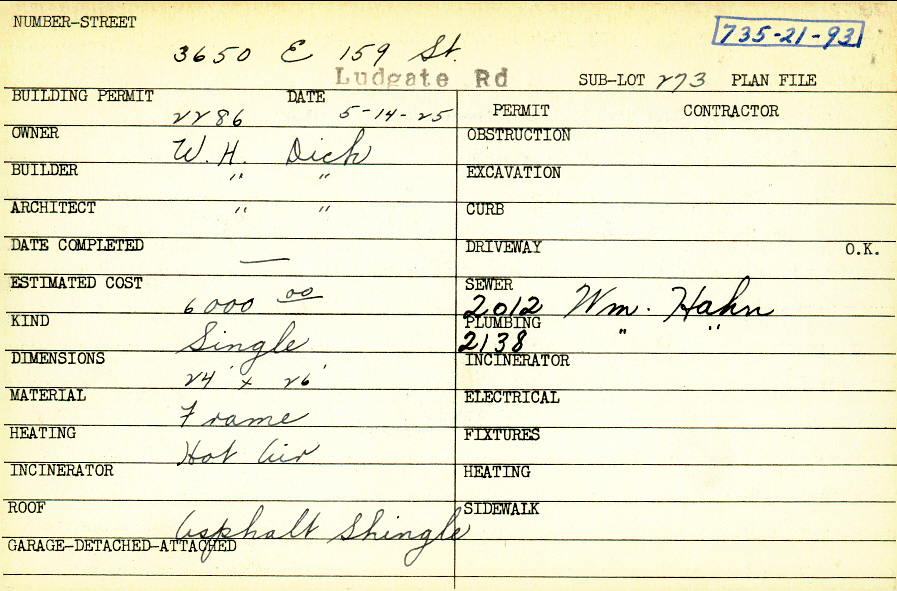 NUMBER-STREET
735-21-93
3650 E 159 St.
Ludgate Rd
SUB-LOT 273 PLAN FILE
BUILDING PERMIT 2286 DATE 5-14-25
OWNER W. H. Dick
BUILDER " "
ARCHITECT " "
DATE COMPLETED —
ESTIMATED COST 6000 00
KIND Single
DIMENSIONS 24' x 26'
MATERIAL Frame
HEATING Hot Air
INCINERATOR
ROOF Asphalt Shingle
GARAGE-DETACHED-ATTACHED
PERMIT CONTRACTOR
OBSTRUCTION
EXCAVATION
CURB
DRIVEWAY O.K.
SEWER 2012 Wm. Hahn
PLUMBING 2138 " "
INCINERATOR
ELECTRICAL
FIXTURES
HEATING
SIDEWALK